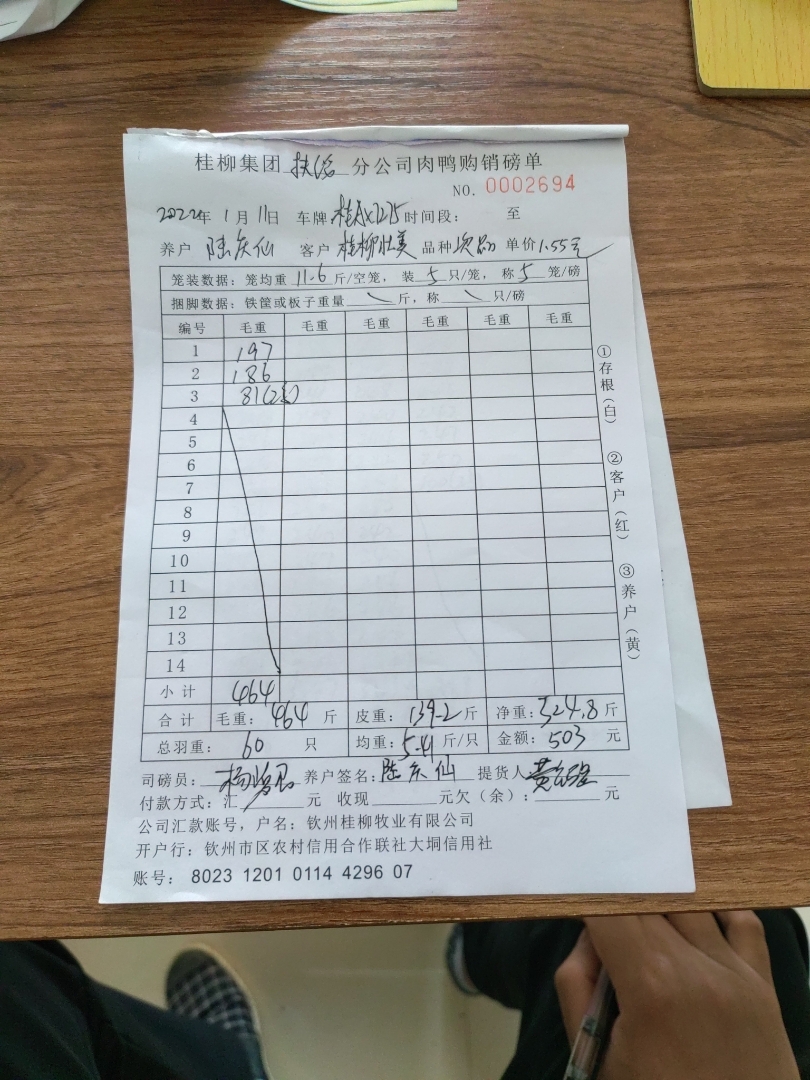 桂柳集团 扶绥 分公司肉鸭购销磅单
NO. 0002694
2022年 1月 11日 车牌 桂AX7275 时间段： 至
养户 陆庆仙 客户 桂柳壮美 品种 次品 单价 1.55元
笼装数据：笼均重 11.6 斤/空笼，装 5 只/笼，称 5 笼/磅
捆脚数据：铁筐或板子重量 \ 斤，称 \ 只/磅
编号 毛重 毛重 毛重 毛重 毛重 毛重
1 197
2 186
3 81(2笼)
4
5
6
7
8
9
10
11
12
13
14
小计 464
合计 毛重：464 斤 皮重：139.2 斤 净重：324.8 斤
总羽重：60 只 均重：5.41 斤/只 金额：503 元
司磅员： 养户签名：陆庆仙 提货人
付款方式：汇 元 收现 元欠（余）： 元
公司汇款账号，户名：钦州桂柳牧业有限公司
开户行：钦州市区农村信用合作联社大垌信用社
账号： 8023 1201 0114 4296 07
①存根（白）
②客户（红）
③养户（黄）